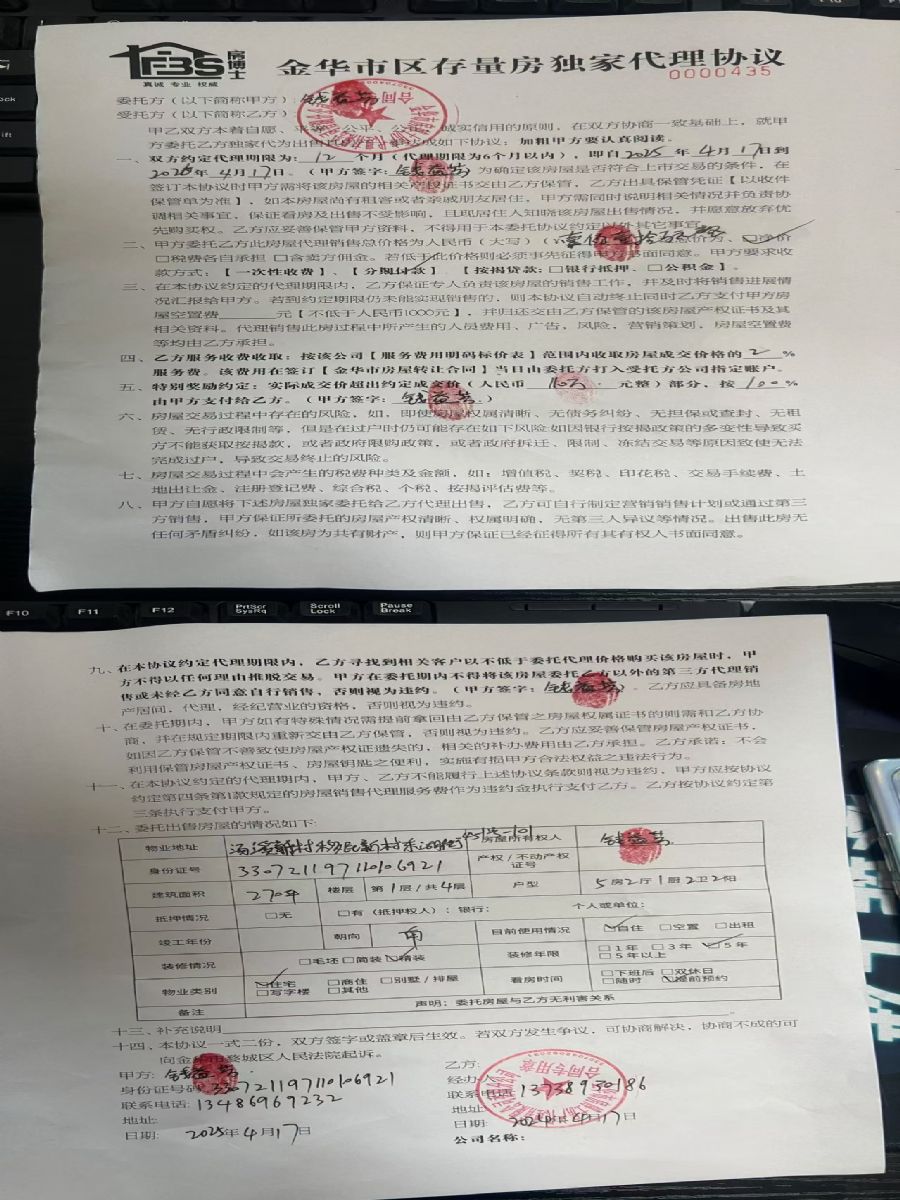 房博士
FBS
真诚 专业 权威
金华市区存量房独家代理协议
0000435
委托方（以下简称甲方）：
受托方（以下简称乙方）：
甲乙双方本着自愿、平等、公平、公正、诚实信用的原则，在双方协商一致基础上，就甲
方委托乙方独家代为出售 达成如下协议：加粗甲方要认真阅读。
一、双方约定代理期限为：12 个月（代理期限为6个月以内），即自2025年4月17日到
2026年4月17日。（甲方签字： 为确定该房屋是否符合上市交易的条件，在
签订本协议时甲方需将该房屋的相关产权证书交由乙方保管，乙方出具保管凭证【以收件
保管单为准】，如本房屋尚有租客或者亲戚朋友居住，甲方需同时说明相关情况并负责协
调相关事宜，保证看房及出售不受影响，且现居住人知晓该房屋出售情况，并愿意放弃优
先购买权。乙方应妥善保管甲方资料，不得用于本委托协议约定以外其它事宜。
二、甲方委托乙方此房屋代理销售总价格为人民币（大写）（ 总价为、☑净价
□税费各自承担 □含卖方佣金。若低于此价格则必须事先征得甲方书面同意。甲方要求收
款方式：【一次性收费】、【分期付款】 【按揭贷款：□银行抵押、□公积金】。
三、在本协议约定的代理期限内，乙方保证专人负责该房屋的销售工作，并及时将销售进展情
况汇报给甲方。若到约定期限仍未能实现销售的，则本协议自动终止同时乙方支付甲方房
屋空置费______元【不低于人民币1000元】，并归还交由乙方保管的该房屋产权证书及其
相关资料。代理销售此房过程中所产生的人员费用、广告，风险，营销策划，房屋空置费
等均由乙方承担。
四、乙方服务收费收取：按该公司【服务费用明码标价表】范围内收取房屋成交价格的 2 %
服务费。该费用在签订【金华市房屋转让合同】当日由委托方打入受托方公司指定账户。
五、特别奖励约定：实际成交价超出约定成交价（人民币 元整）部分，按 100%
由甲方支付给乙方。（甲方签字： ）
六、房屋交易过程中存在的风险，如，即使房屋权属清晰、无债务纠纷、无担保或查封、无租
赁、无行政限制等，但是在过户时仍可能存在如下风险如因银行按揭政策的多变性导致买
方不能获取按揭款，或者政府限购政策，或者政府拆迁、限制、冻结交易等原因致使无法
完成过户，导致交易终止的风险。
七、房屋交易过程中会产生的税费种类及金额，如：增值税、契税、印花税、交易手续费、土
地出让金、注册登记费、综合税、个税、按揭评估费等。
八、甲方自愿将下述房屋独家委托给乙方代理出售，乙方可自行制定营销销售计划或通过第三
方销售，甲方保证所委托的房屋产权清晰、权属明确，无第三人异议等情况。出售此房无
任何矛盾纠纷，如该房为共有财产，则甲方保证已经征得所有其有权人书面同意。
九、在本协议约定代理期限内，乙方寻找到相关客户以不低于委托代理价格购买该房屋时，甲
方不得以任何理由推脱交易。甲方在委托期内不得将该房屋委托乙方以外的第三方代理销
售或未经乙方同意自行销售，否则视为违约。（甲方签字： ）。乙方应具备房地
产居间，代理，经纪营业的资格，否则视为违约。
十、在委托期内，甲方如有特殊情况需提前拿回由乙方保管之房屋权属证书的则需和乙方协
商，并在规定期限内重新交由乙方保管，否则视为违约。乙方应妥善保管房屋产权证书，
如因乙方保管不善致使房屋产权证遗失的，相关的补办费用由乙方承担。乙方承诺：不会
利用保管房屋产权证书、房屋钥匙之便利，实施有损甲方合法权益之违法行为。
十一、在本协议约定的代理期内，甲方、乙方不能履行上述协议条款则视为违约，甲方应按协议
约定第四条第1款规定的房屋销售代理服务费作为违约金执行支付乙方。乙方按协议约定第
三条执行支付甲方。
十二、委托出售房屋的情况如下：
物业地址 房屋所有权人
身份证号 330721197110106921 产权/不动产权证号
建筑面积 270平 楼层 第1层/共4层 户型 5房2厅1厨2卫2阳
抵押情况 □无 □有（抵押权人）：银行： 个人或单位：
竣工年份 朝向 南 目前使用情况 ☑自住 □空置 □出租
装修情况 □毛坯 □简装 ☑精装 装修年限 □1年 □3年 ☑5年 □5年以上
物业类别 ☑住宅 □商住 □别墅/排屋 □写字楼 □其他 看房时间 □下班后 □双休日 □随时 ☑提前预约
备注 声明：委托房屋与乙方无利害关系
十三、补充说明
十四、本协议一式二份，双方签字或盖章后生效。若双方发生争议，可协商解决，协商不成的可
向金华市婺城区人民法院起诉。
甲方： 乙方：
身份证号码：330721197110106921 经办人
联系电话：13486969232 联系电话：13738930186
地址： 地址：
日期： 2025年4月17日 日期： 2024年4月17日
公司名称：
合同专用章
F10 F11 F12 PrtScr SysRq Scroll Lock Pause Break